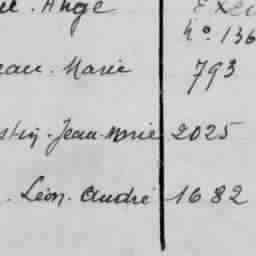 Ange Exe
N° 136
Marie 793
Jean-Marie 2025
Léon. André 1682